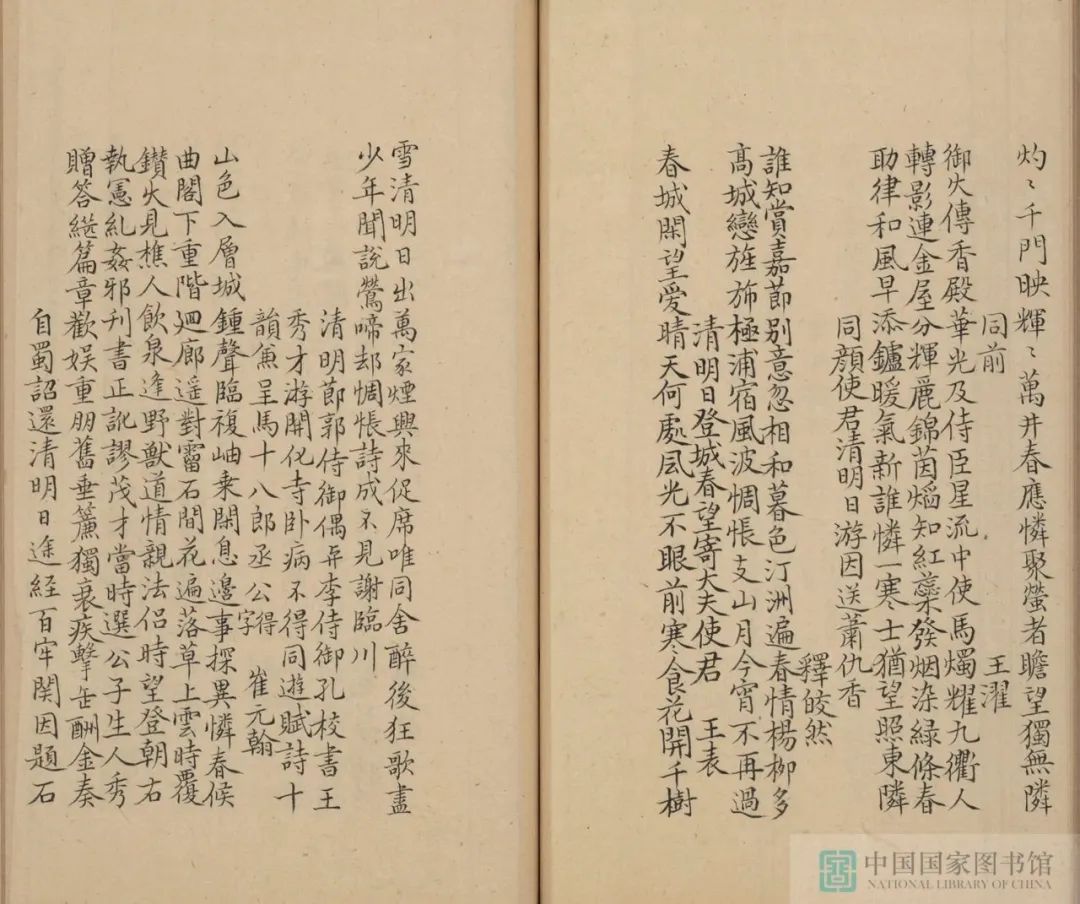 灼〻千門映輝〻萬井春應憐聚螢者瞻望獨無隣
同前 王濯
御火傳香殿華光及侍臣星流中使馬燭耀九衢人
轉影連金屋分輝麗錦茵焰知紅蘂發烟染綠條春
助律和風早添鑪暖氣新誰憐一寒士猶望照東隣
同顏使君清明日游因送蕭仇香
釋皎然
誰知賞嘉節别意忽相和暮色汀洲遍春情楊柳多
高城戀旌斾極浦宿風波惆悵支山月今宵不再過
清明日登城春望寄大夫使君 王表
春城閑望愛晴天何處風光不眼前寒食花開千樹
雪清明日出萬家煙興來促席唯同舍醉後狂歌盡
少年聞說鶯啼却惆悵詩成不見謝臨川
清明節郭侍御偶与李侍御孔校書王
秀才游開化寺卧病不得同遊賦詩十
韻兼呈馬十八郎丞公得字 崔元翰
山色入層城鍾聲臨複岫乗閑息邊事探異憐春候
曲閣下重階廻廊遥對霤石間花遍落草上雲時覆
鑽火見樵人飲泉逢野獸道情親法侣時望登朝右
執憲糺姦邪刊書正訛謬茂才當時選公子生人秀
贈答繼篇章歡娱重朋舊垂簾獨衰疾擊缶酬金奏
自蜀詔還清明日途経百牢関因題石
中国国家图书馆
NATIONAL LIBRARY OF CHINA